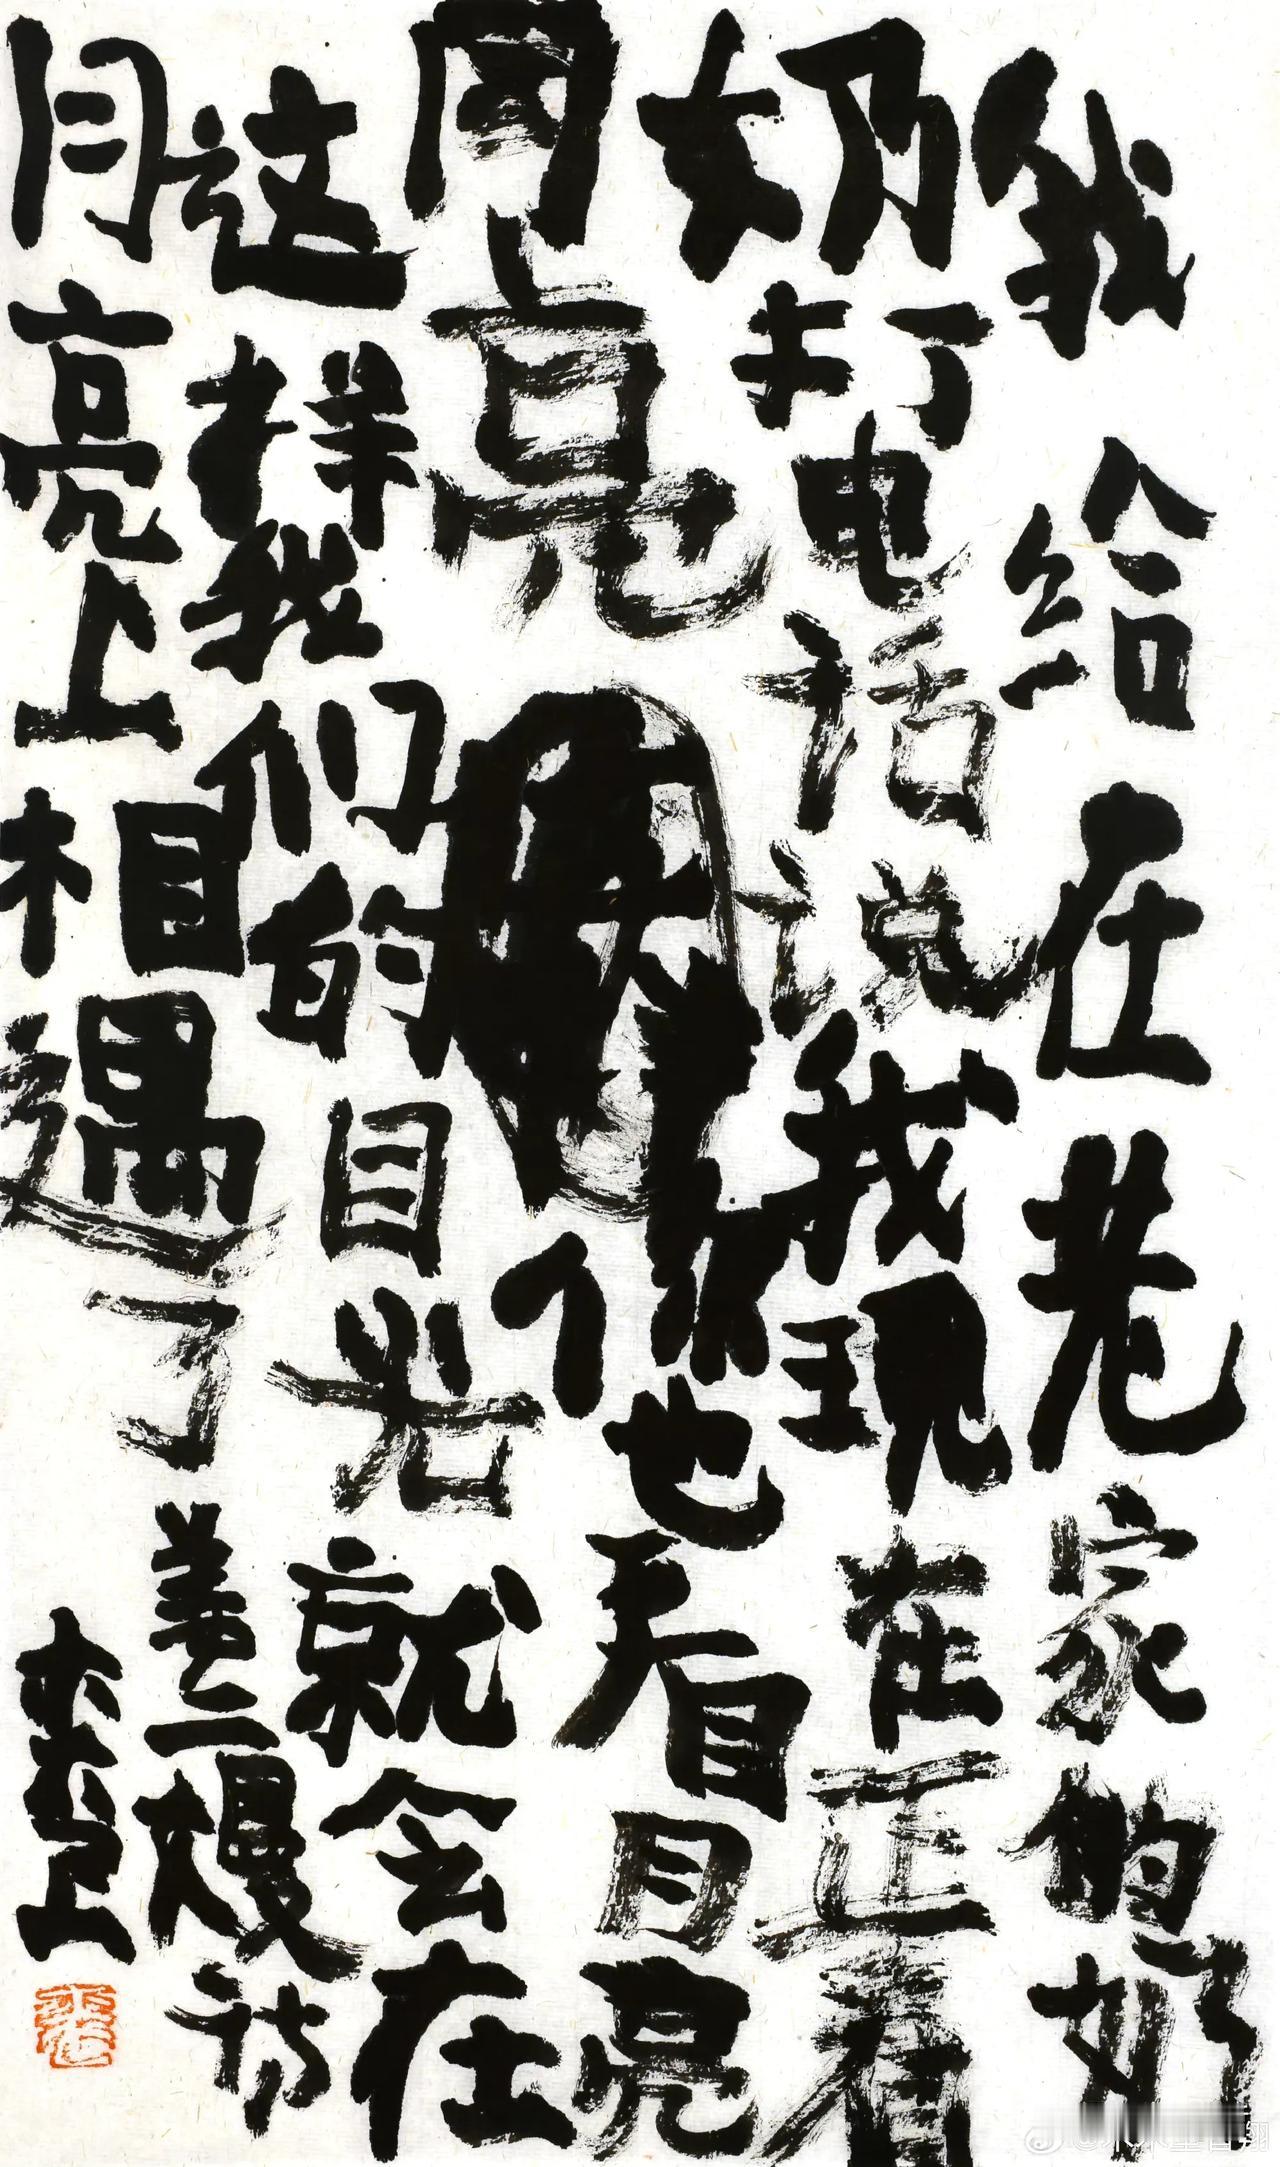 我给在老家的奶
奶打电话说我现在正看
月亮 你也看月亮
这样我们的目光就会在
月亮上相遇了
姜二嫚诗